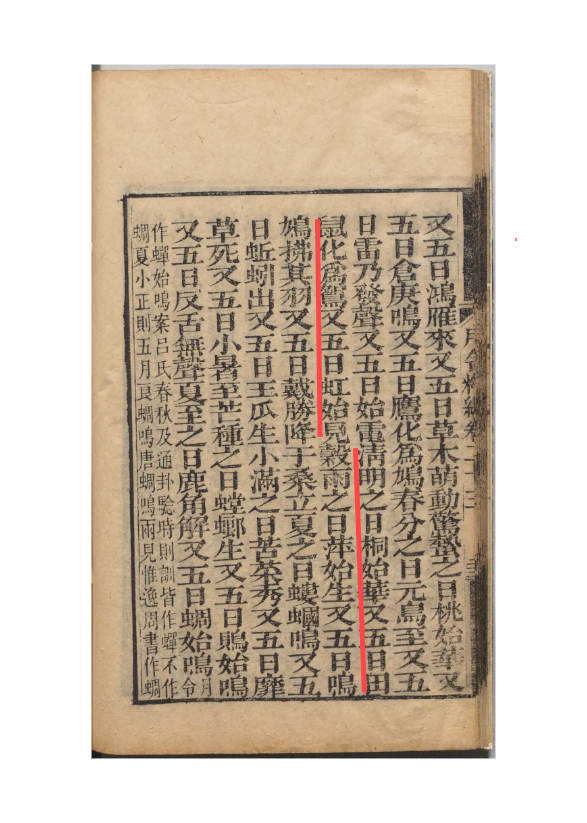 又五日鴻雁來又五日草木萌動驚蟄之日桃始華又
五日倉庚鳴又五日鷹化為鳩春分之日元鳥至又五
日雷乃發聲又五日始電淸明之日桐始華又五日田
鼠化為鴽又五日虹始見穀雨之日萍始生又五日鳴
鳩拂其羽又五日戴勝降于桑立夏之日螻蟈鳴又五
日蚯蚓出又五日王瓜生小滿之日苦菜秀又五日靡
草死又五日小暑至芒種之日螳螂生又五日鵙始鳴
又五日反舌無聲夏至之日鹿角解又五日蜩始鳴
月令
作蟬始鳴案呂氏春秋及通卦驗時則訓皆作蟬不作
蜩夏小正則五月良蜩鳴唐蜩鳴兩見惟逸周書作蜩